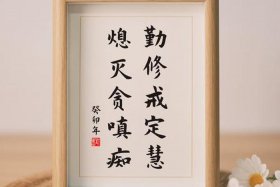 勤修戒定慧
熄灭贪嗔痴
癸卯年